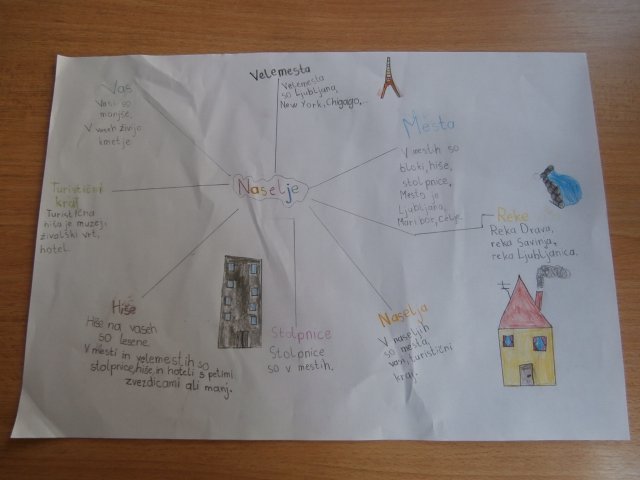 Velemesta
Velemesta
so Ljubljana,
New York, Chigago,...
Vas
Vasi so
manjše.
V vaseh živijo
kmetje
Mesta
V mestih so
bloki, hiše,
stolpnice,
Mesta je
Ljubljana,
Maribor, Celje
Naselje
Turistični
kraj
Turistična
hiša je muzej,
živalski vrt,
hotel.
Reke
Reka Drava,
reka Savinja,
reka Ljubljanica.
Hiše
Hiše na vaseh
so lesene.
V mesti in velemestih so
stolpnice, hiše in hoteli s petimi
zvezdicami ali manj.
Stolpnice
Stolpnice
so v mestih.
Naselja
V naseljih
so mesta,
vasi, turistični
kraj.